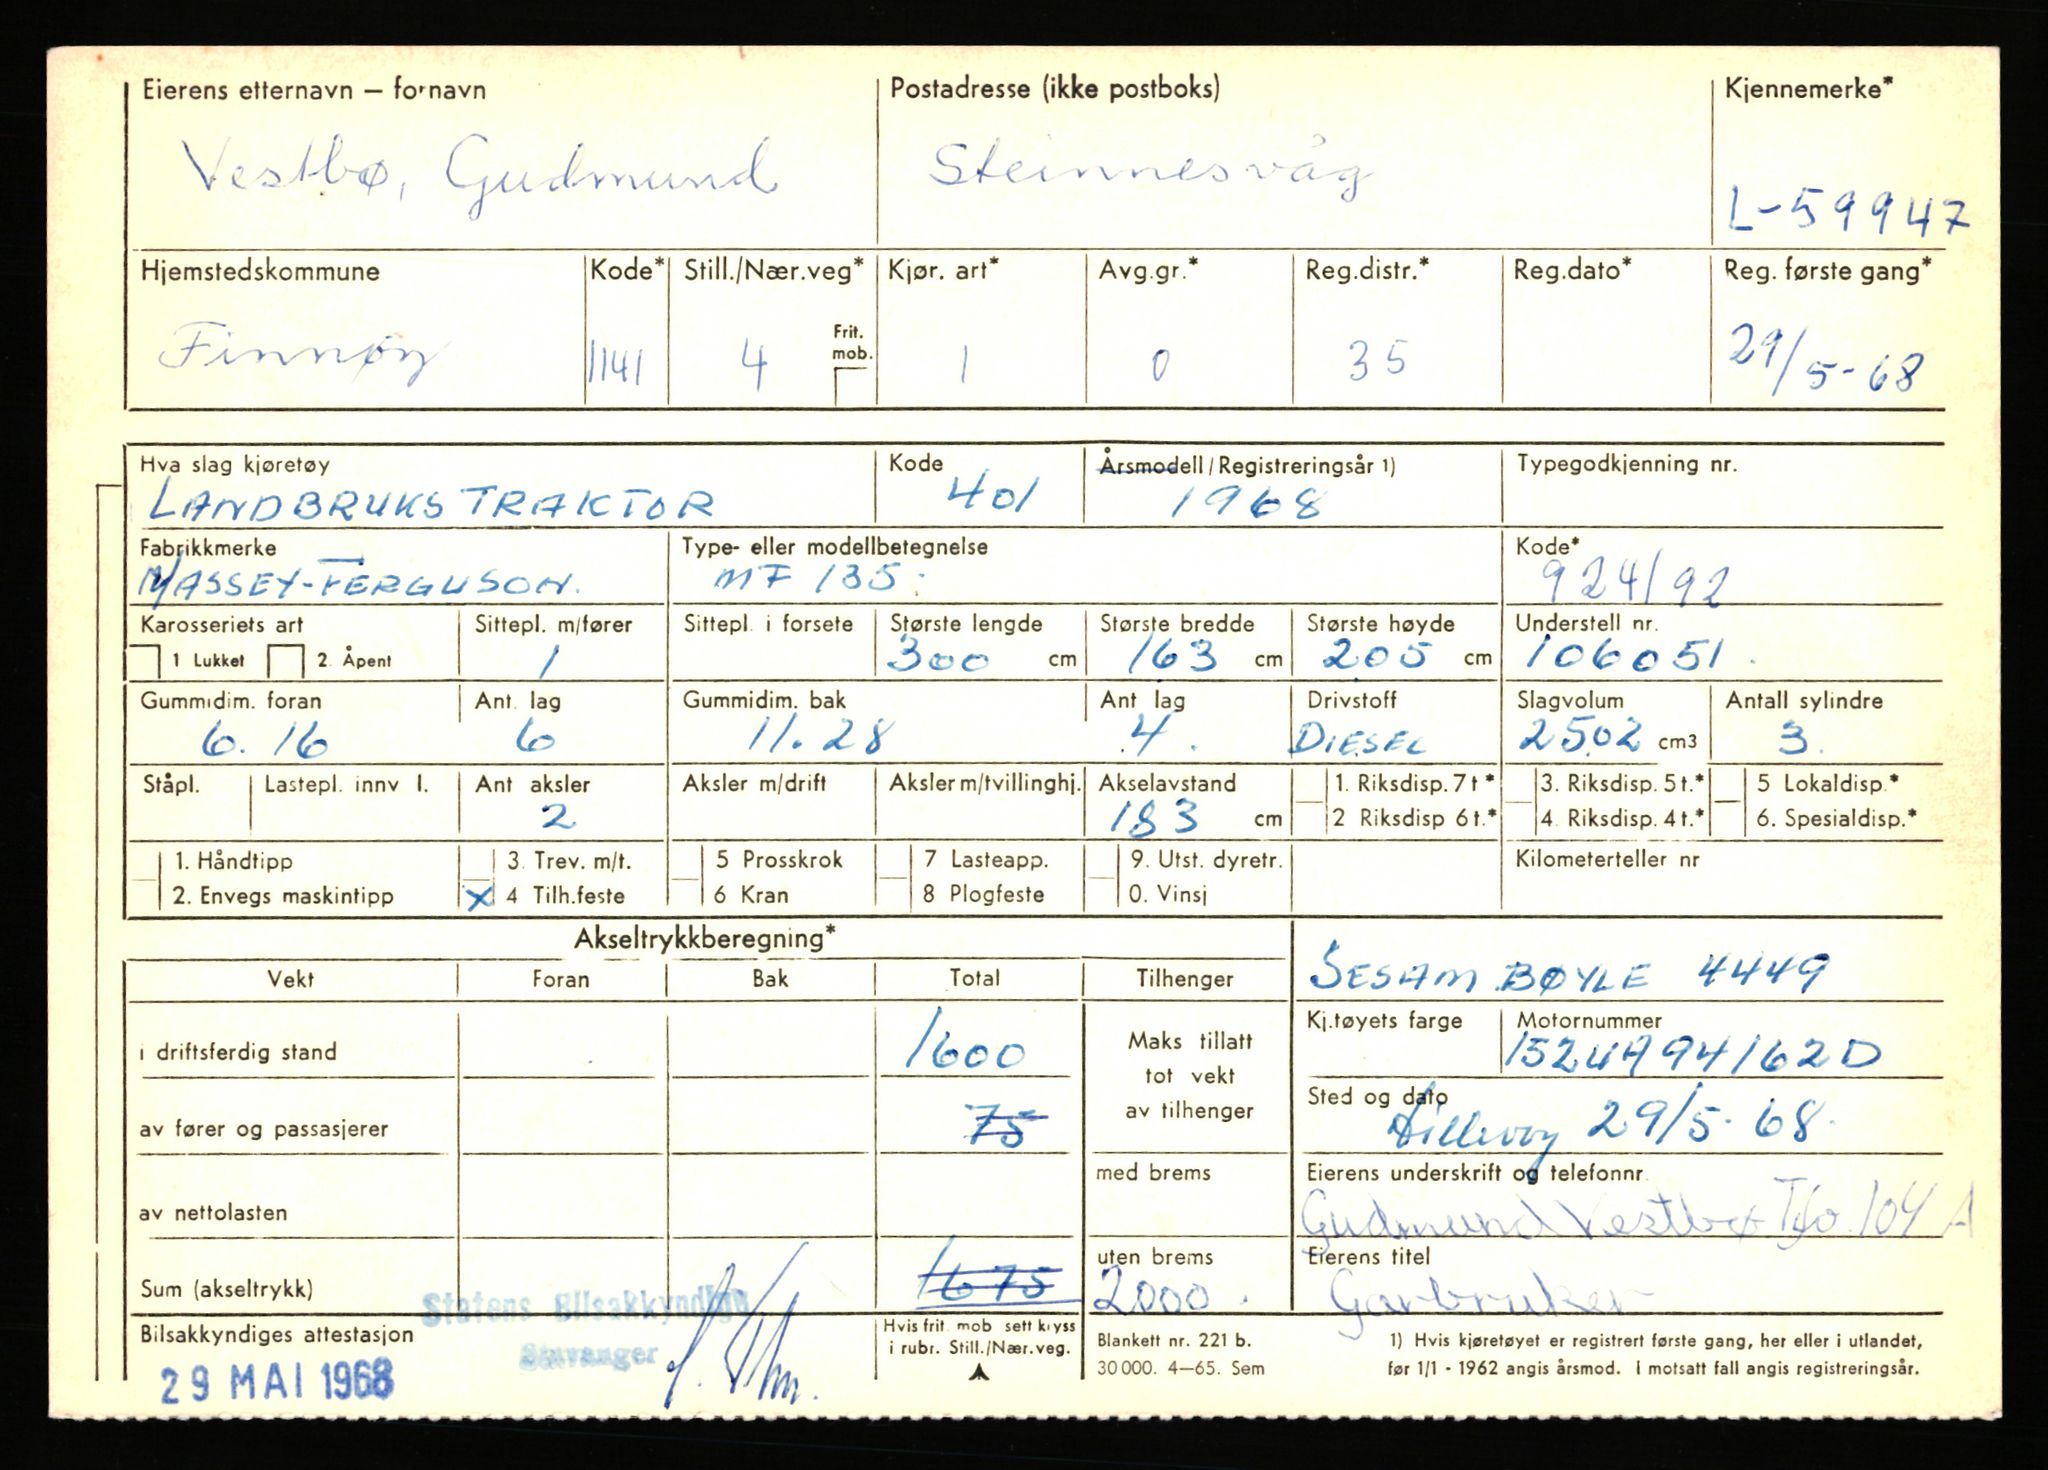 Eierens etternavn — fornavn Postadresse (ikke postboks) Kjennemerke*
Vestbø, Gudmund Steinnesvåg L-59947
Hjemstedskommune Kode* Still./Nær.veg* Kjør. art* Avg.gr.* Reg.distr.* Reg.dato* Reg. første gang*
Finnøy 1141 4 Frit. mob. 1 0 35 29/5-68
Hva slag kjøretøy Kode Årsmodell/Registreringsår 1) Typegodkjenning nr.
LANDBRUKSTRAKTOR 401 1968
Fabrikkmerke Type- eller modellbetegnelse Kode*
MASSEY-FERGUSON. MF 135. 924/92
Karosseriets art Sittepl. m/fører Sittepl. i forsete Største lengde Største bredde Største høyde Understell nr.
1 Lukket 2. Åpent 1 300 cm 163 cm 205 cm 106051.
Gummidim. foran Ant. lag Gummidim. bak Ant lag Drivstoff Slagvolum Antall sylindre
6.16 6 11.28 4. DIESEL 2502 cm3 3.
Ståpl. Lastepl. innv l. Ant aksler Aksler m/drift Aksler m/tvillinghj. Akselavstand 1. Riksdisp. 7 t* 3. Riksdisp. 5 t.* 5 Lokaldisp.*
2 183 cm 2 Riksdisp 6 t.* 4. Riksdisp. 4 t.* 6. Spesialdisp.*
1. Håndtipp 3. Trev. m/t. 5 Prosskrok 7 Lasteapp. 9. Utst. dyretr. Kilometerteller nr
2. Envegs maskintipp x 4 Tilh.feste 6 Kran 8 Plogfeste 0. Vinsj
Akseltrykkberegning*
Vekt Foran Bak Total Tilhenger SESAM BØYLE 4449
Kj.tøyets farge Motornummer
i driftsferdig stand 1600 Maks tillatt tot vekt av tilhenger 152UA94162D
Sted og dato
av fører og passasjerer 75 29/5-68.
med brems Eierens underskrift og telefonnr.
av nettolasten Gudmund Vestbø 104 A
uten brems Eierens titel
Sum (akseltrykk) 1675 2000. Garbruker
Statens Bilsakkyndige
Stavanger
Bilsakkyndiges attestasjon Hvis frit. mob sett kryss i rubr. Still./Nær.veg. Blankett nr. 221 b. 1) Hvis kjøretøyet er registrert første gang, her eller i utlandet,
29 MAI 1968 30 000. 4—65. Sem før 1/1 - 1962 angis årsmod. I motsatt fall angis registreringsår.